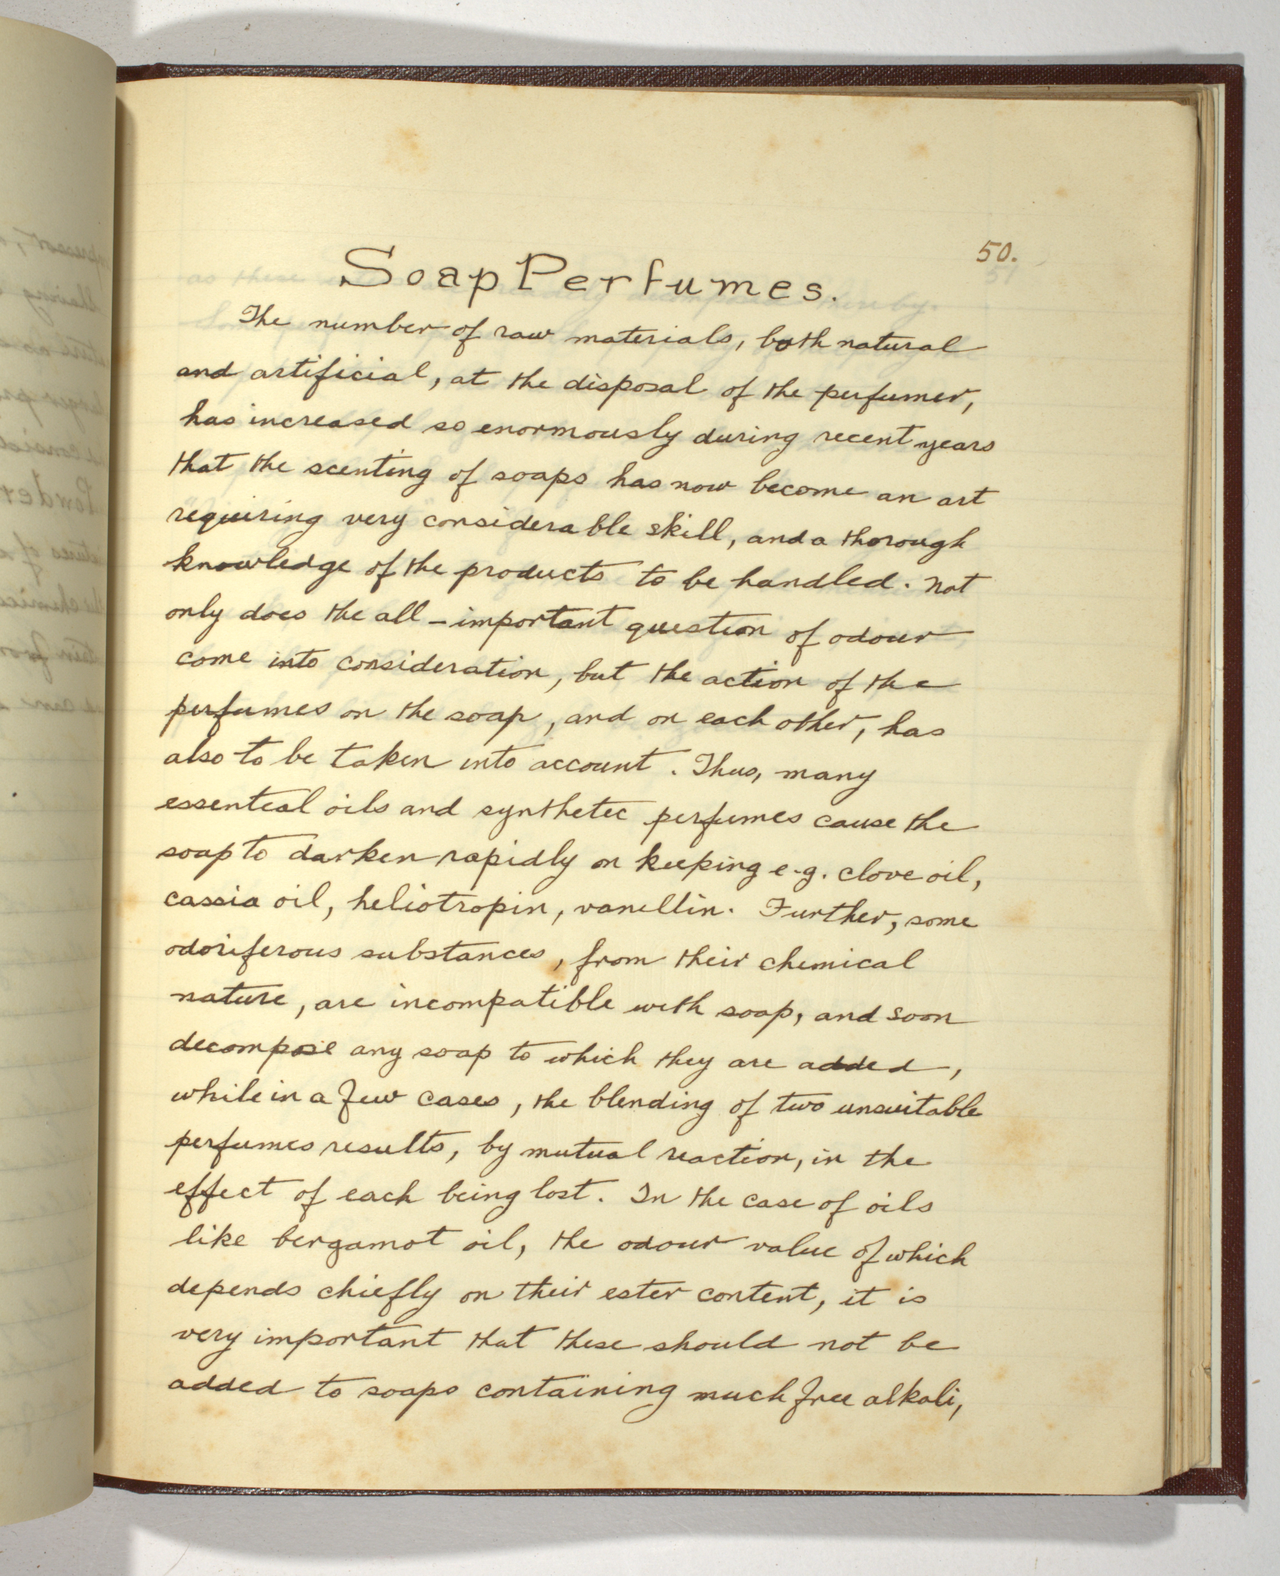 50.
Soap Perfumes.
The number of raw materials, both natural
and artificial, at the disposal of the perfumer,
has increased so enormously during recent years
that the scenting of soaps has now become an art
requiring very considerable skill, and a thorough
knowledge of the products to be handled. Not
only does the all-important question of odour
come into consideration, but the action of the
perfumes on the soap, and on each other, has
also to be taken into account. Thus, many
essential oils and synthetic perfumes cause the
soap to darken rapidly on keeping e.g. clove oil,
cassia oil, heliotropin, vanillin. Further, some
odoriferous substances, from their chemical
nature, are incompatible with soap, and soon
decompose any soap to which they are added,
while in a few cases, the blending of two unsuitable
perfumes results, by mutual reaction, in the
effect of each being lost. In the case of oils
like bergamot oil, the odour value of which
depends chiefly on their ester content, it is
very important that these should not be
added to soaps containing much free alkali,